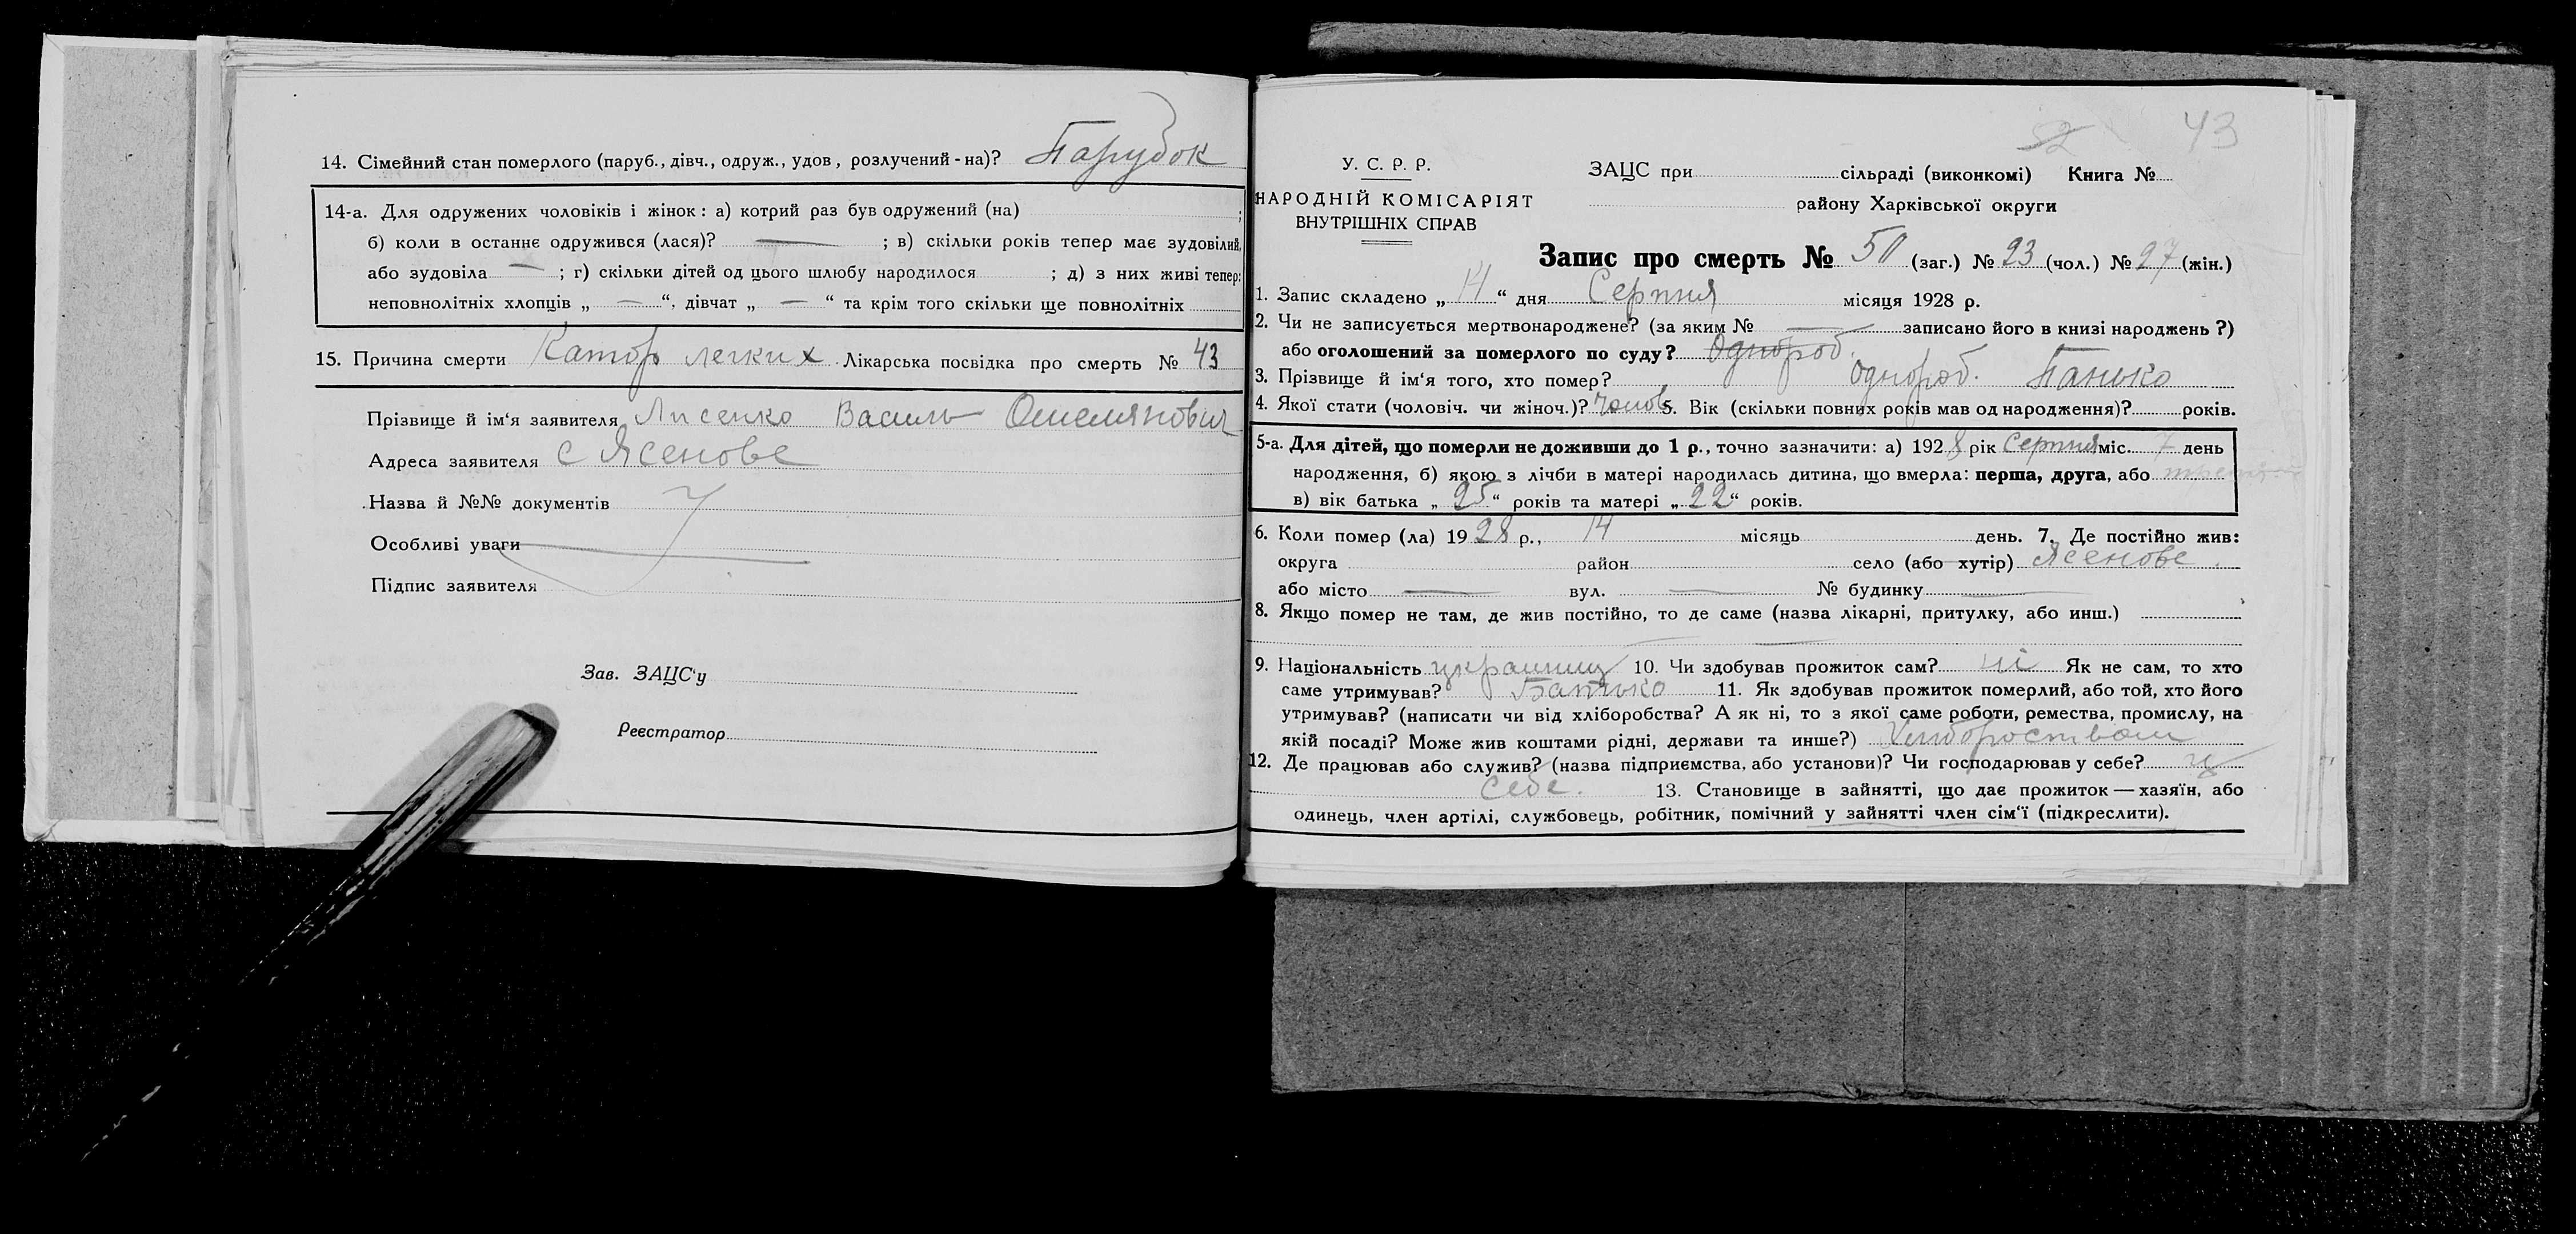 14. Сімейний стан померлого (паруб., дівч., одруж., удов, розлучений - на)? Парубок
14-а. Для одружених чоловіків і жінок: а) котрий раз був одружений (на) ;
б) коли в останнє одружився (лася)? — ; в) скільки років тепер має зудовілий,
або зудовіла — ; г) скільки дітей од цього шлюбу народилося ; д) з них живі тепер:
неповнолітніх хлопців „ — “, дівчат „ — “ та крім того скільки ще повнолітніх
15. Причина смерти Катор легких Лікарська посвідка про смерть № 43
Прізвище й ім'я заявителя Лисенко Василь Омелянович
Адреса заявителя с Ясенове
Назва й №№ документів
Особливі уваги
Підпис заявителя
Зав. ЗАЦС'у
Реєстратор
52 43
У. С. Р. Р.
НАРОДНІЙ КОМІСАРІЯТ
ВНУТРІШНІХ СПРАВ
ЗАЦС при сільраді (виконкомі) Книга №
району Харківської округи
Запис про смерть № 50 (заг.) № 23 (чол.) № 27 (жін.)
1. Запис складено „ 14 “ дня Серпня місяця 1928 р.
2. Чи не записується мертвонароджене? (за яким № — записано його в книзі народжень?)
або оголошений за померлого по суду? Однороб.
3. Прізвище й ім'я того, хто помер? Однороб. Панько
4. Якої стати (чоловіч. чи жіноч.)? Чолов 5. Вік (скільки повних років мав од народження)? років.
5-а. Для дітей, що померли не доживши до 1 р., точно зазначити: а) 1928 рік Серпня міс. 7 день
народження, б) якою з лічби в матері народилась дитина, що вмерла: перша, друга, або
в) вік батька „ 25 “ років та матері „ 22 “ років.
6. Коли помер (ла) 1928 р., 14 місяць день. 7. Де постійно жив:
округа район село (або хутір) Ясенове.
або місто — вул. — № будинку —
8. Якщо помер не там, де жив постійно, то де саме (назва лікарні, притулку, або инш.)
9. Національність украинец 10. Чи здобував прожиток сам? ні Як не сам, то хто
саме утримував? Батько 11. Як здобував прожиток померлий, або той, хто його
утримував? (написати чи від хліборобства? А як ні, то з якої саме роботи, ремества, промислу, на
якій посаді? Може жив коштами рідні, держави та инше?)
12. Де працював або служив? (назва підприємства, або установи)? Чи господарював у себе? у
себе. 13. Становище в зайнятті, що дає прожиток — хазяїн, або
одинець, член артілі, службовець, робітник, помічний у зайнятті член сім'ї (підкреслити).